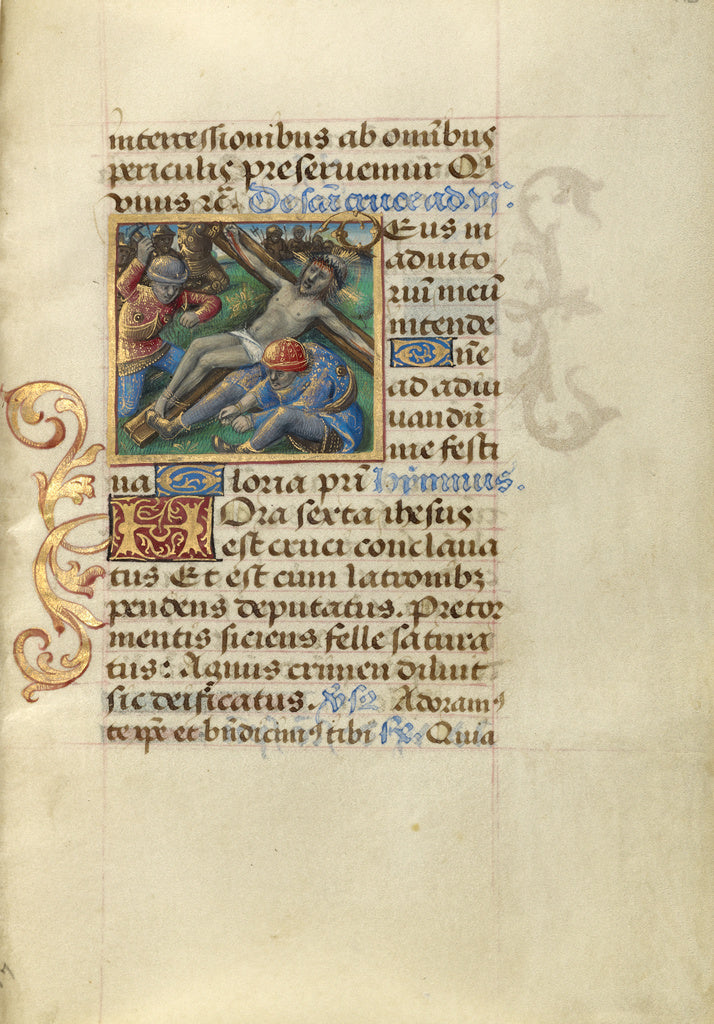 intercessionibus ab om̄ibus
periculis preseruemur Qͥ
viuis ⁊c̄. De sāc̄ cruce ad .vj.
Eus in
adiuto
riū meū
intende
Dn̄e
ad adiu
uandū
me festi
na Gloria pr̄i hymnus.
Hora sexta ihesus
est cruci conclaua
tus Et est cum latronibꝫ
pendens deputatus. Pre tor
mentis siciens felle satura
tus: Agnus crimen diluit
sic deificatus. Vˢꝰ Adoramꝰ
te xp̄e et bn̄dicimꝰ tibi R̸. Quia